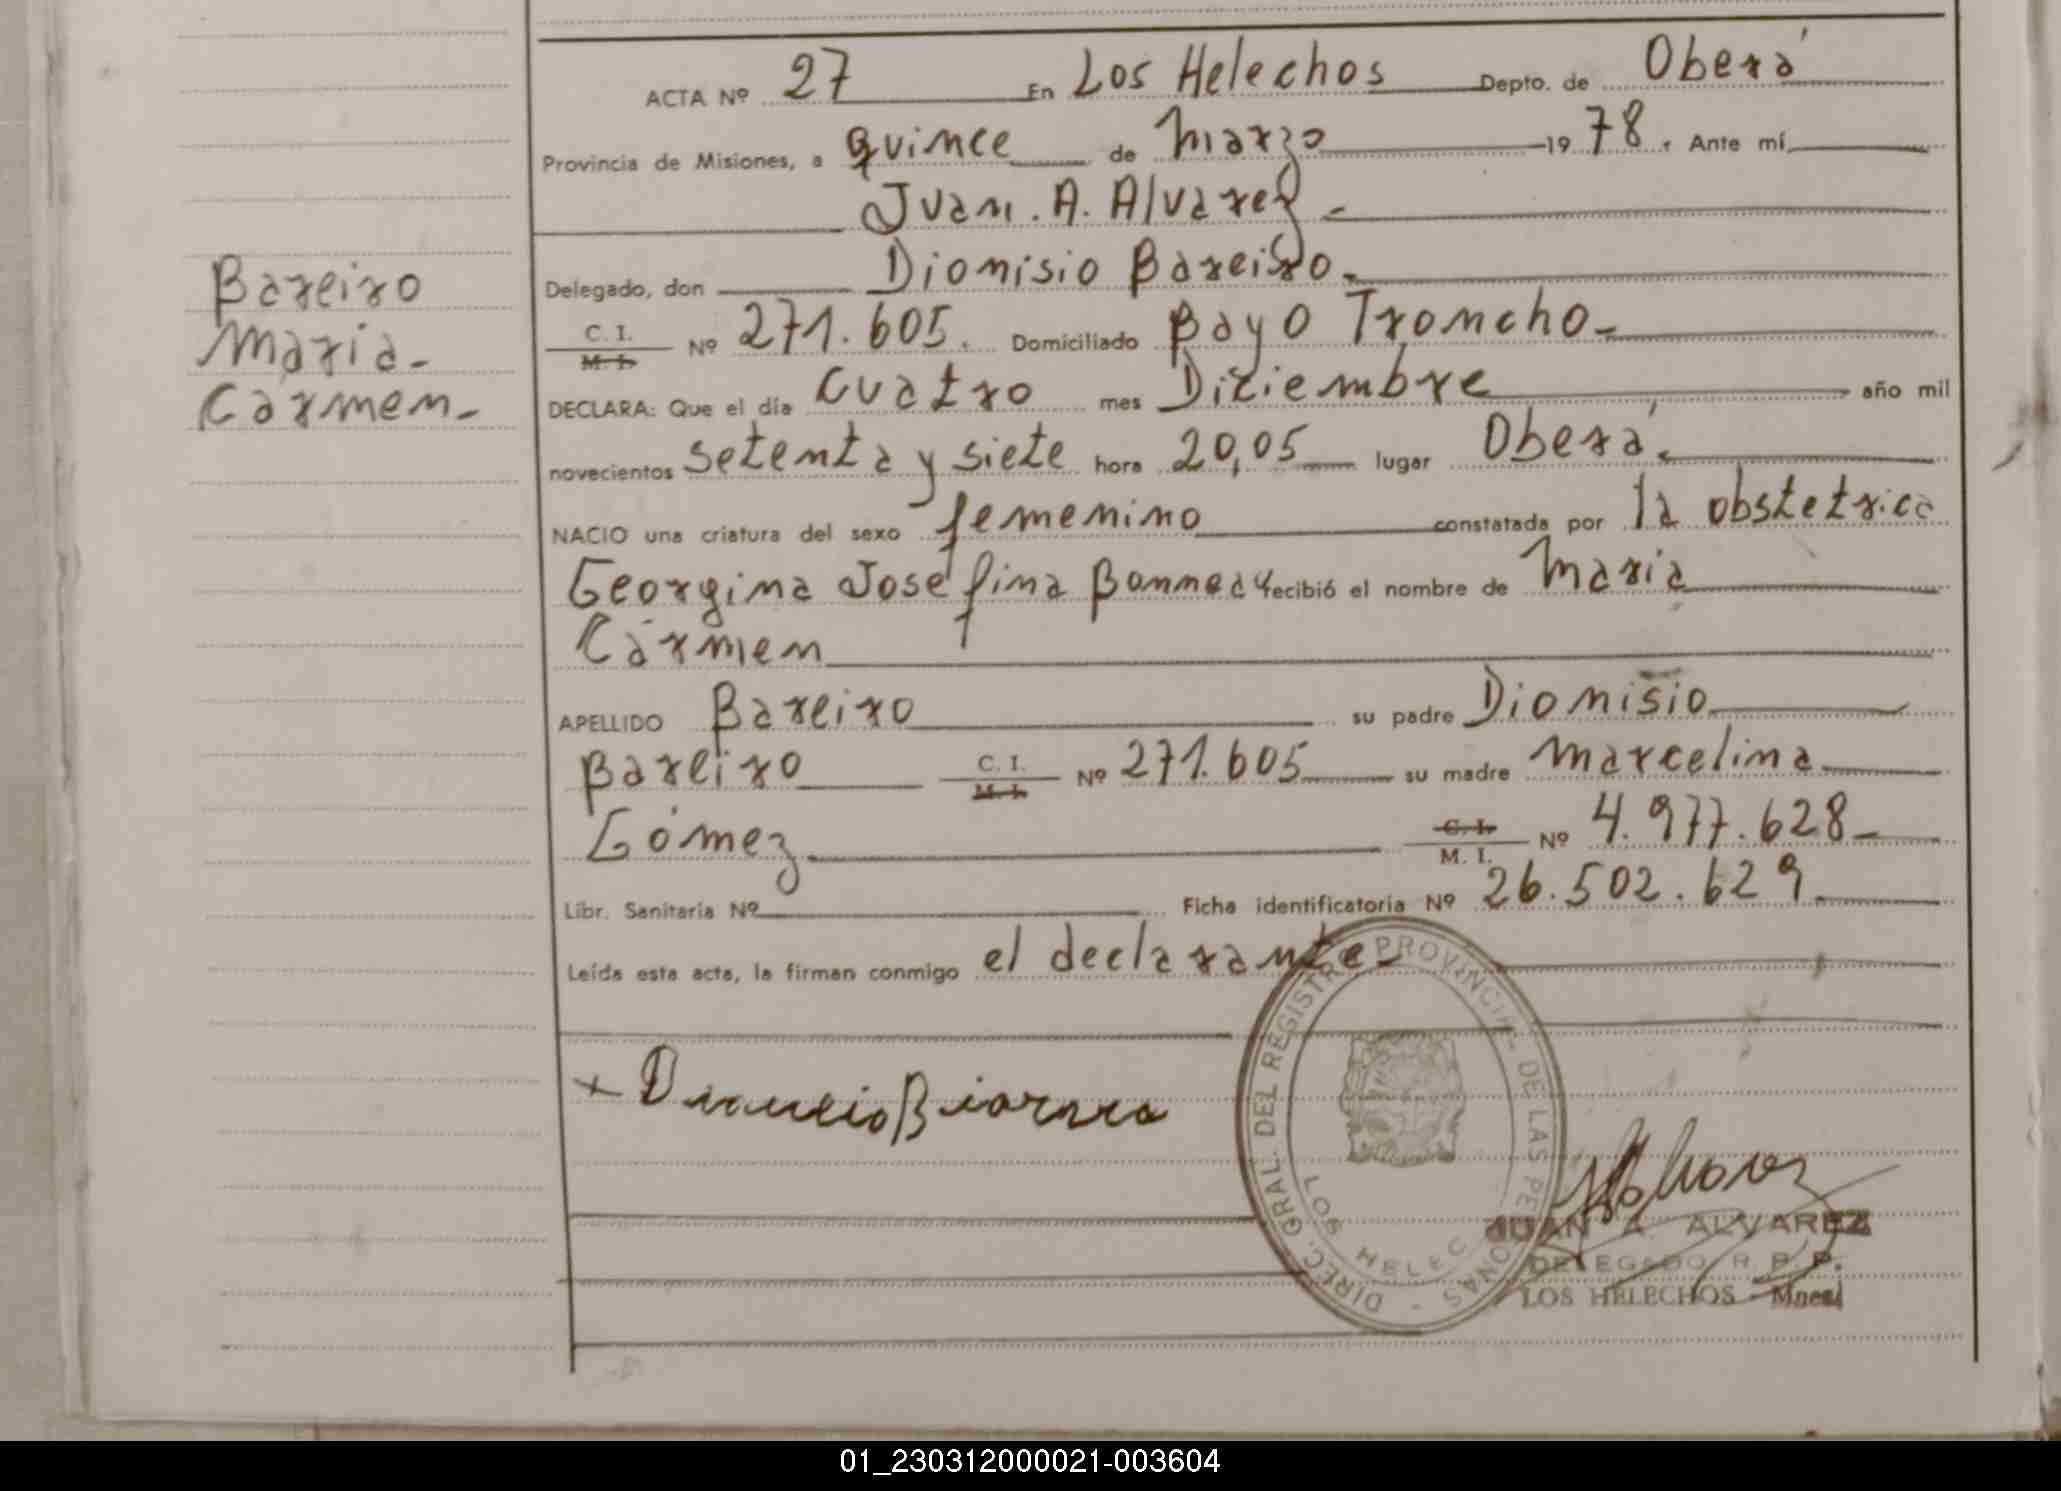 ACTA Nº 27 En Los Helechos Depto. de Oberá
Provincia de Misiones, a quince de Marzo 1978. Ante mí
Juan. A. Alvarez -
Delegado, don Dionisio Bareiro.
Bareiro
Maria-
Carmen-
C. I.
M. I. Nº 271.605. Domiciliado Bayo Troncho-
DECLARA: Que el día cuatro mes Diziembre año mil
novecientos setenta y siete hora 20,05 lugar Oberá.
NACIO una criatura del sexo femenino constatada por la obstetrica
Georgina Josefina recibió el nombre de Maria
Cármen
APELLIDO Bareiro su padre Dionisio
Bareiro C. I. M. I. Nº 271.605 su madre Marcelina
Gómez C. I. M. I. Nº 4.977.628-
Libr. Sanitaria Nº Ficha identificatoria Nº 26.502.629
Leída esta acta, la firman conmigo el declarante-
DIREC. GRAL. DEL REGISTRO PROVINCIAL DE LAS PERSONAS -
LOS HELEC
JUAN A. ALVAREZ
DELEGADO R. P. P.
LOS HELECHOS - Mnes
01_230312000021-003604